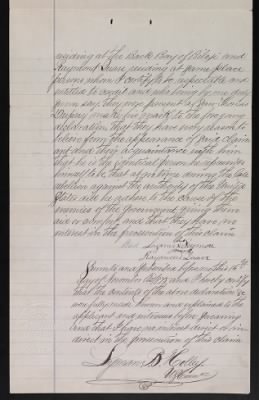 residing at the Back Bay of Biloxi and
Raymond residing at same place
persons whom I certify to be respectable and
entitled to credit and who being by me duly
sworn say they were present and saw
make his mark to the foregoing
declaration that they have every reason to
believe from the appearance of said claim
ant and their acquaintance with him
that he is the identical person he represents
himself to be that at no time during the late
rebellion against the authority of the United
States did he adhere to the cause of the
enemies of the Government giving them
aid or comfort and that they have no
interest in the prosecution of this claim

Raymond
Sworn to and subscribed before me this
day of and I hereby certify
that the contents of the above declaration &c
were fully made known and explained to the
applicant and witnesses before swearing
and that I have no interest direct or in
direct in the prosecution of this claim
Lyman B. Holley